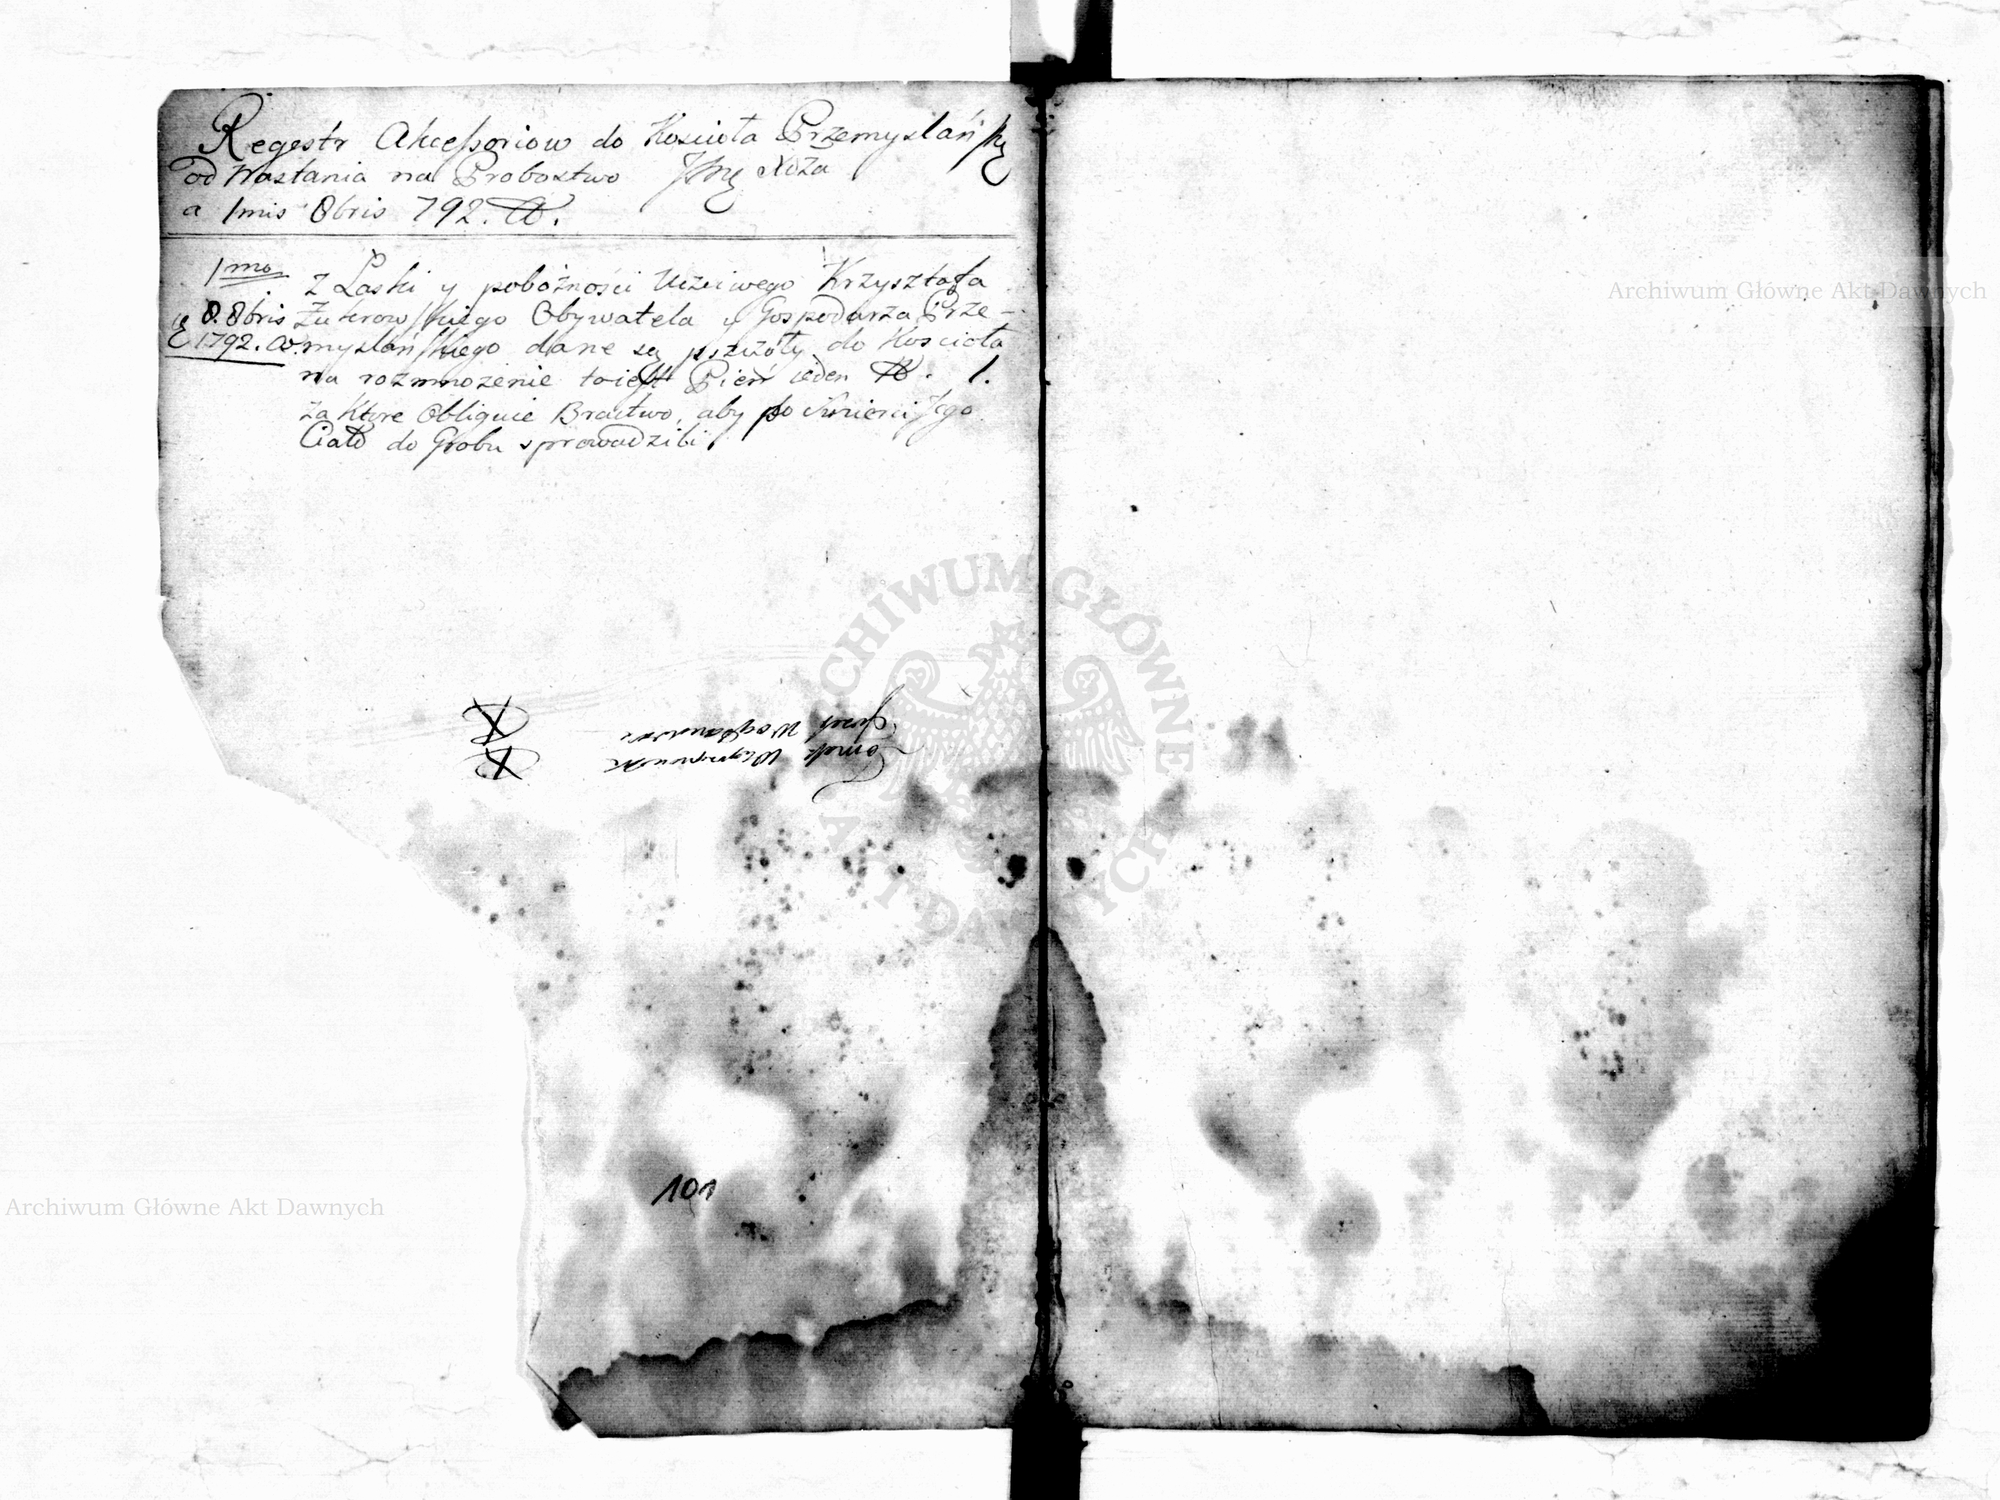 Regestr Akcessoriow do Kościoła Przemyslańsky
od Wastania na Probostwo Jmę Noża
a 1mis 8bris 792.
1mo Z Laski y pobożności Uczciwego Krzysztofa
8. 8bris Żukrowskiego Obywatela y Gospodarza Prze-
1792. myslańskiego dane są pszczoły do Kościoła
na rozmnożenie toiest Pień ieden 1.
za ktore Obliguie Bractwo, aby po śmierci Jego
Ciało do Grobu sprowadzili
Jozef
Tomasz
101
Archiwum Główne Akt Dawnych
Archiwum Główne Akt Dawnych
ARCHIWUM GŁÓWNE AKT DAWNYCH